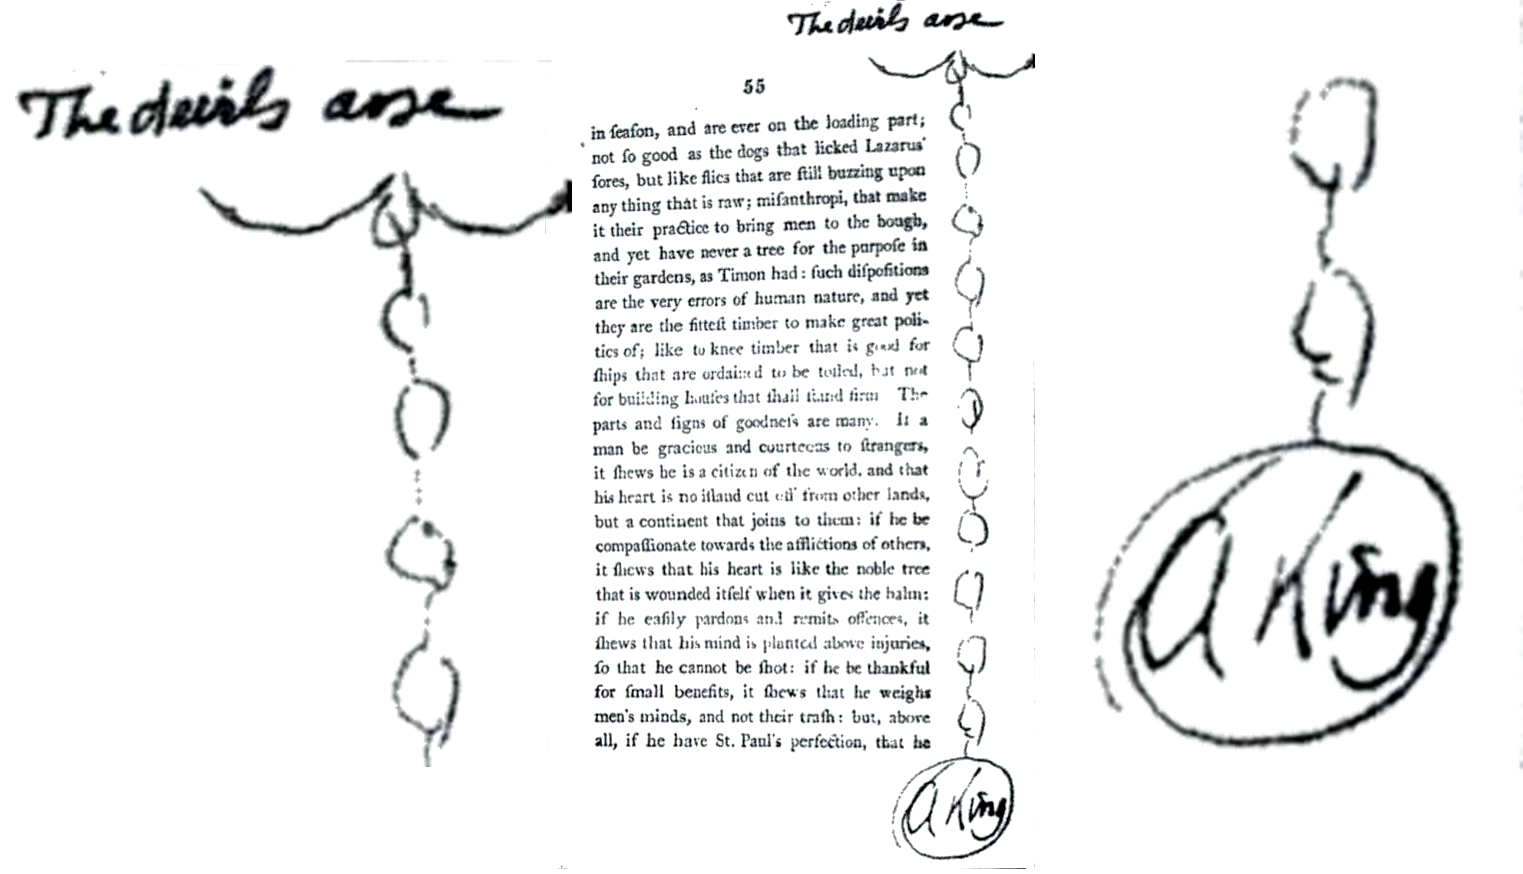 The devils arse
The devils arse
55
in ſeaſon, and are ever on the loading part;
not ſo good as the dogs that licked Lazarus'
ſores, but like flies that are ſtill buzzing upon
any thing that is raw; miſanthropi, that make
it their practice to bring men to the bough,
and yet have never a tree for the purpoſe in
their gardens, as Timon had: ſuch diſpoſitions
are the very errors of human nature, and yet
they are the fitteſt timber to make great poli-
tics of; like to knee timber that is good for
ſhips that are ordained to be toſſed, but not
for building houſes that ſhall ſtand firm The
parts and ſigns of goodneſs are many. If a
man be gracious and courteous to ſtrangers,
it ſhews he is a citizen of the world, and that
his heart is no iſland cut off from other lands,
but a continent that joins to them: if he be
compaſſionate towards the afflictions of others,
it ſhews that his heart is like the noble tree
that is wounded itſelf when it gives the balm:
if he eaſily pardons and remits offences, it
ſhews that his mind is planted above injuries,
ſo that he cannot be ſhot: if he be thankful
for ſmall benefits, it ſhews that he weighs
men's minds, and not their traſh: but, above
all, if he have St. Paul's perfection, that he
A King
A King